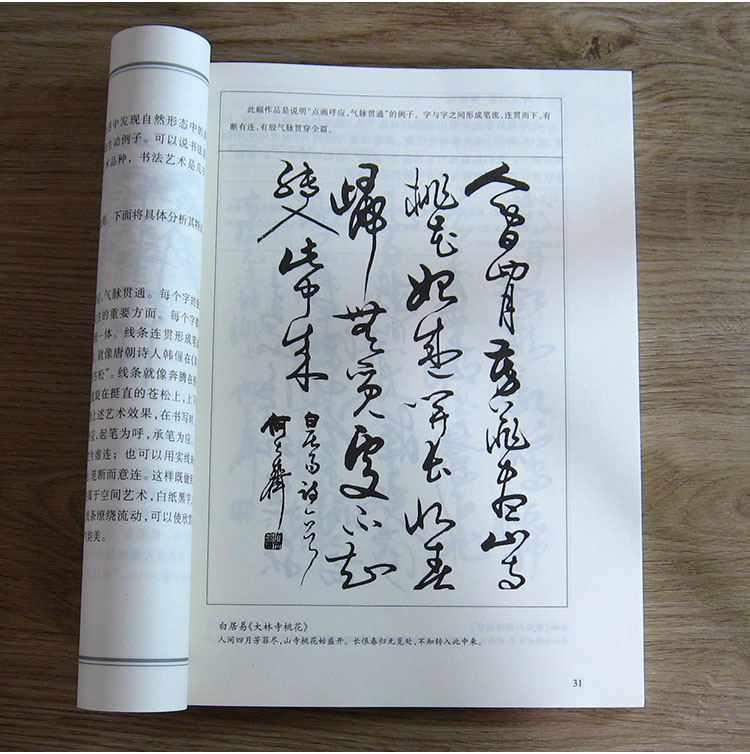 中发现自然形态中的
生动例子。可以说书法
术品种，书法艺术是几
下面将具体分析其特
，气脉贯通。每个字的
的重要方面。每个字
一体。线条连贯形成笔
就像唐朝诗人韩偓在《
松”。线条就像奔腾在
在挺直的苍松上，上下
上述艺术效果，在书写时
应，起笔为呼，承笔为应。
为虚连；也可以用实线
笔断而意连。这样既做到
属于空间艺术，白纸黑字
线条缭绕流动，可以使欣
韵美。
此幅作品是说明“点画呼应，气脉贯通”的例子。字与字之间形成笔流，连贯而下，有
断有连，有股气脉贯穿全篇。
人間四月芳菲盡山寺
桃花始盛開長恨春
歸無覓處不知
轉入此中來
白居易詩一首
白居易《大林寺桃花》
人间四月芳菲尽，山寺桃花始盛开。长恨春归无觅处，不知转入此中来。
31